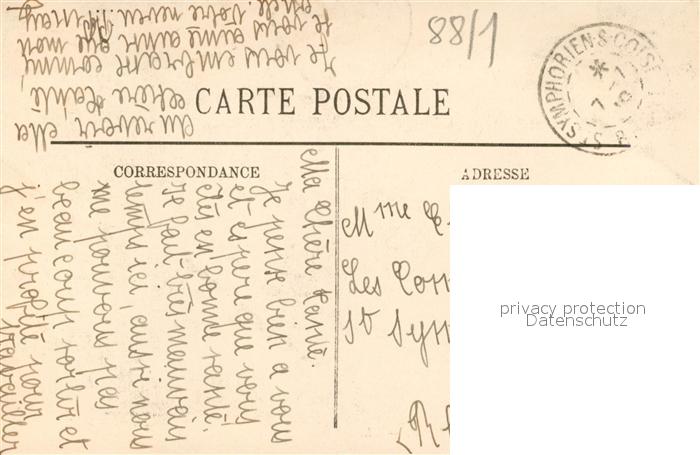 88/1
CARTE POSTALE
ST SYMPHORIEN-S-COISE
CORRESPONDANCE
ADRESSE
Ma Chère Tante.
Je pense bien a vous
et espère que vous
êtes en bonne santé.
Il fait très mauvais
temps ici, aussi nous
ne pouvons pas
beaucoup sortir et
j'en profite pour
travailler
Au revoir Ma
chère tante,
Je vous embrasse comme
je vous aime ainsi que mon
oncle. Votre neveu
Mme
Les
St Sym
(R
privacy protection
Datenschutz